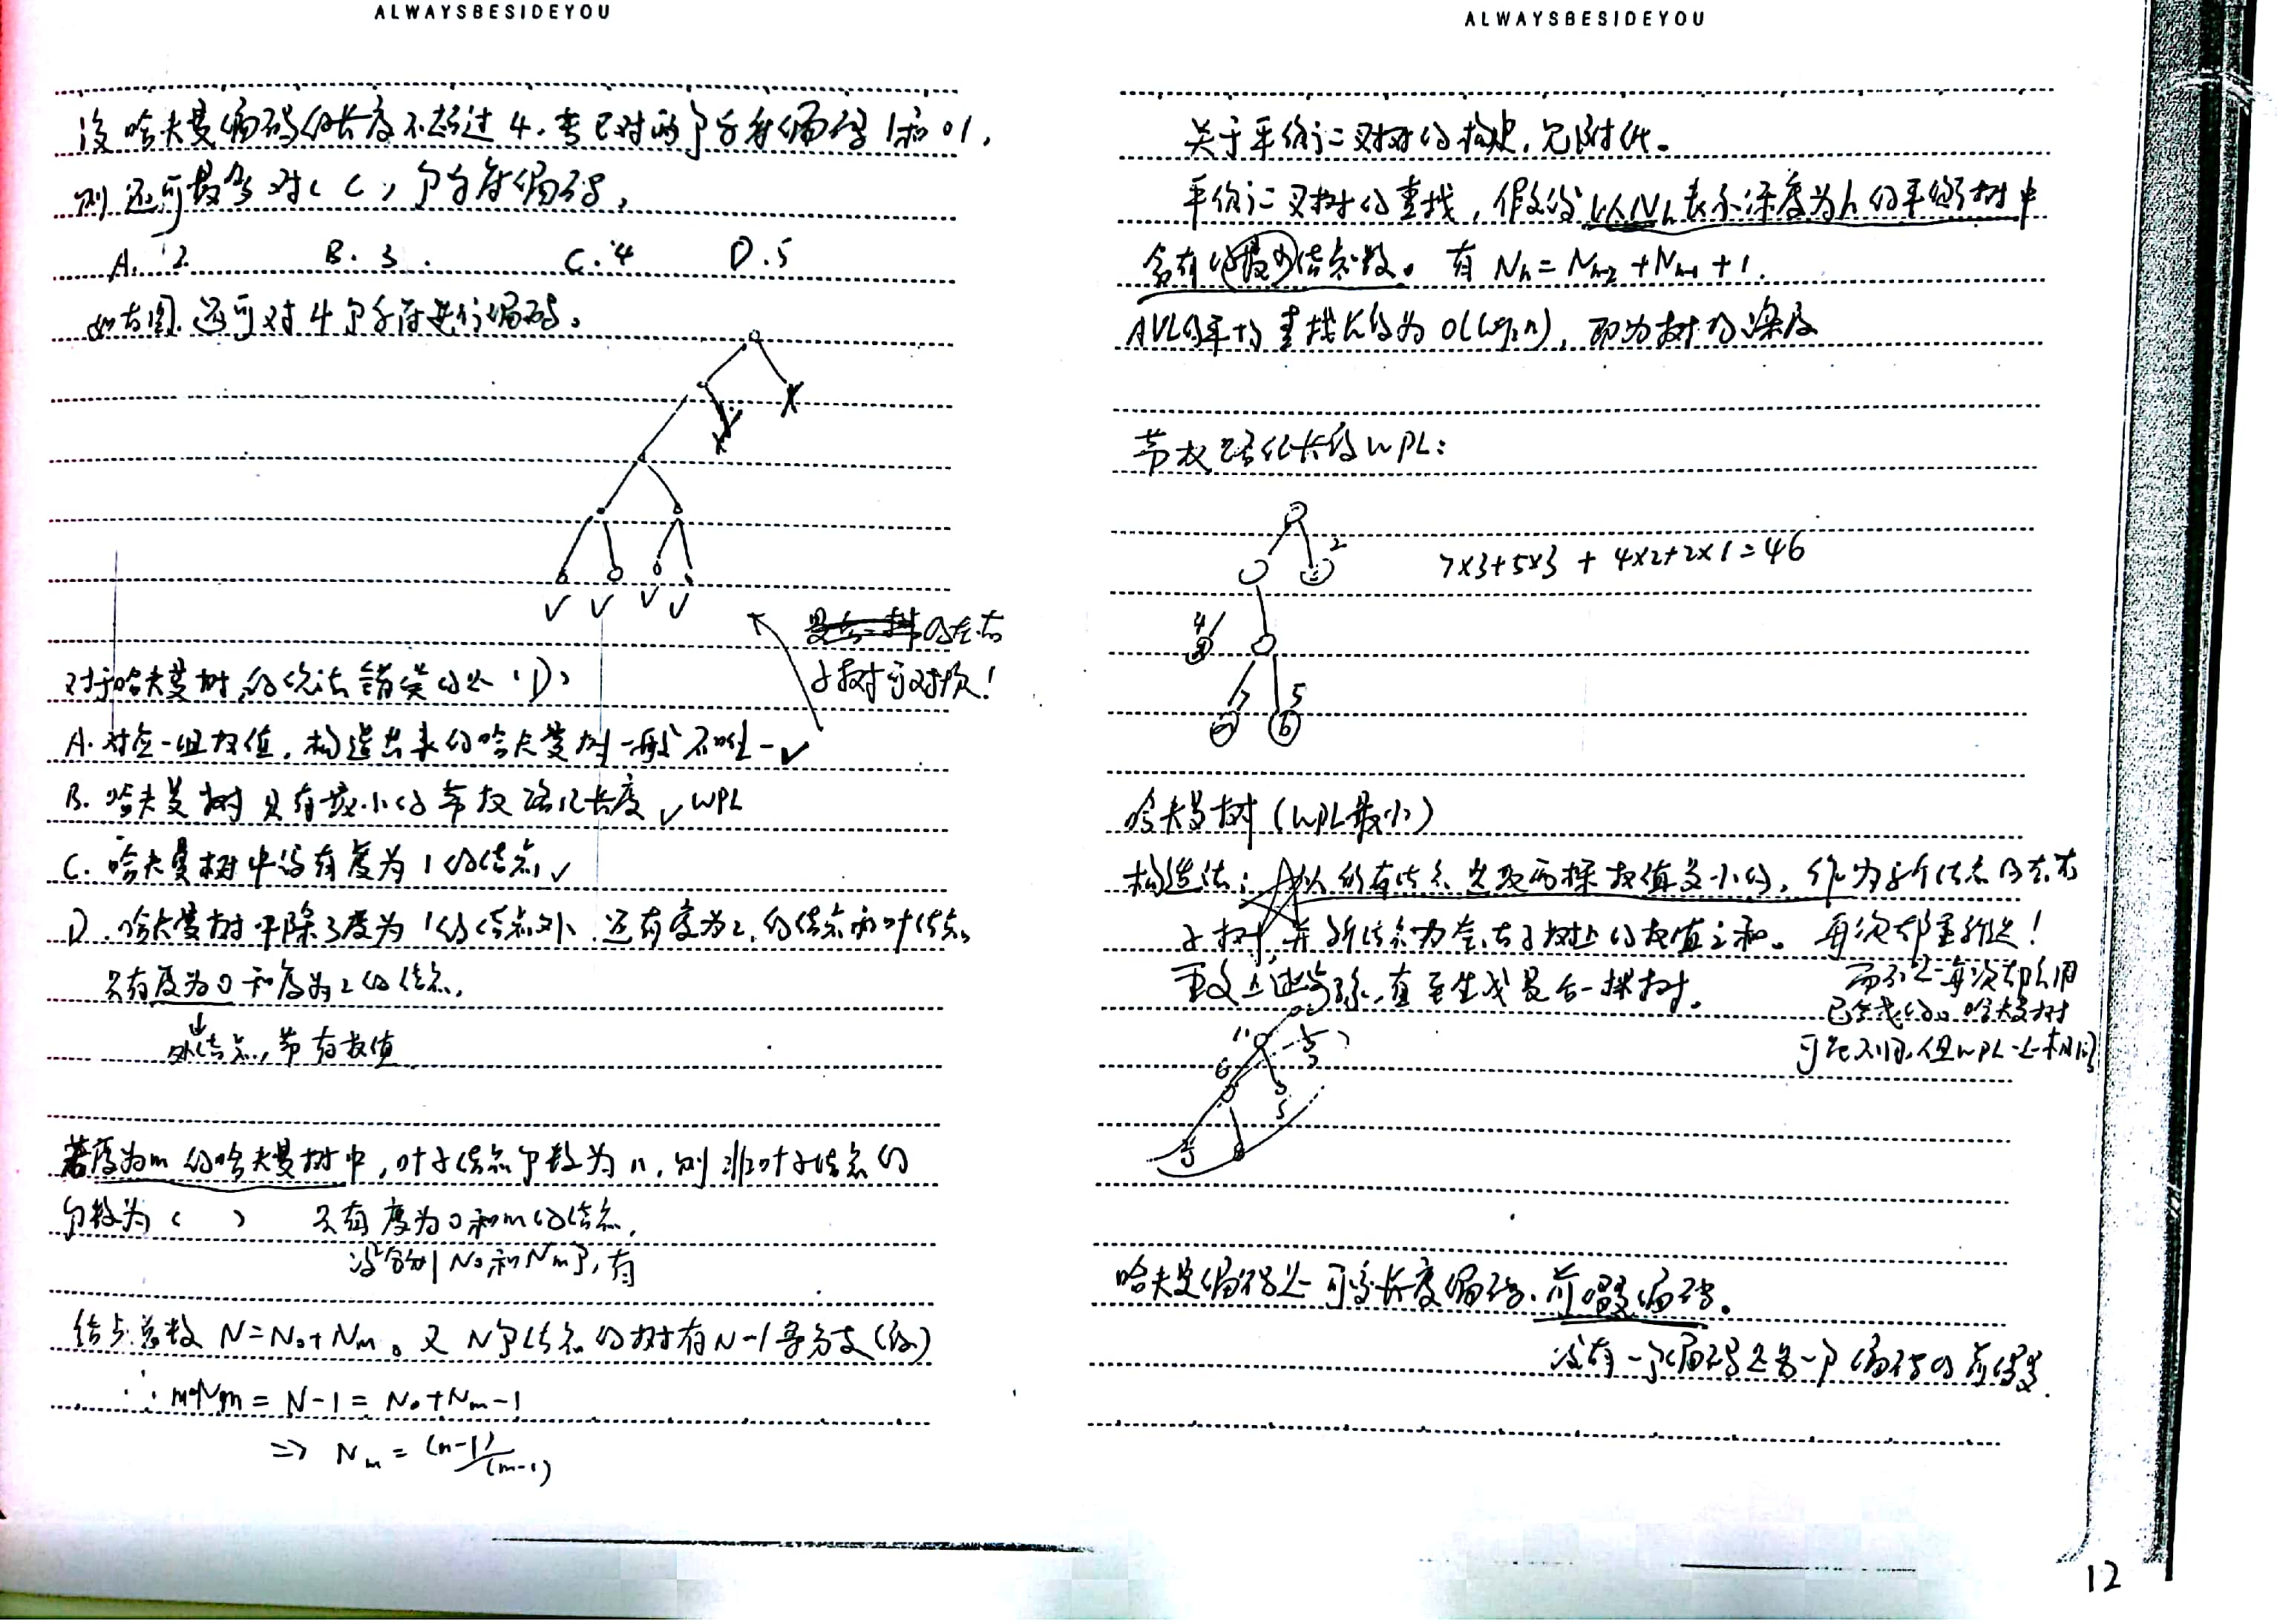 ALWAYSBESIDEYOU
设哈夫曼编码的长度不超过4.若已对两个字符编码1和01,
则还可最多对( C )个字符编码,
A. 2 B. 3. C. 4 D. 5
如右图 还可对4个字符进行编码。
的左右
子树可对换!
对于哈夫曼树,的说法错误的是(D)
A. 对应一组权值,构造出来的哈夫曼树一般不唯一✓
B. 哈夫曼树具有最小的带权路径长度 ✓ WPL
C. 哈夫曼树中没有度为1的结点 ✓
D. 哈夫曼树中除了度为1的结点外,还有度为2的结点和叶结点
只有度为0和度为2的结点.
↓
外结点,带有权值
若度为m的哈夫曼树中,叶子结点个数为n,则非叶子结点的
个数为( ) 只有度为0和m的结点,
设分别N₀和Nm个,有
结点总数 N=N₀+Nm。又N个结点的树有N-1条分支()
∴ m·Nm = N-1 = N₀+Nm-1
=> Nm = (n-1)/(m-1)
ALWAYSBESIDEYOU
关于平衡二叉树的构建,见附件。
平衡二叉树的查找,假设以Nh表示深度为h的平衡树中
含有的最少结点数。有 Nh = Nh-2 + Nh-1 + 1.
AVL的平均查找长度为 O(log₂n), 即为树的深度
带权路径长度WPL:
2
4
7 5
b
7×3+5×3 + 4×2+2×1=46
哈夫曼树(WPL最小)
构造法: 从所有结点选取两棵权值最小的,作为新结点的左右
子树,并新结点为左、右子树上的权值之和。每次都重新选!
重复上述步骤,直至生成最后一棵树。
而不是每次都用
已生成的 哈夫曼树
可能不同,但WPL是相同
11
6
5
哈夫曼编码是可变长度编码、前缀编码。
没有一个编码是另一个编码的前缀.
12